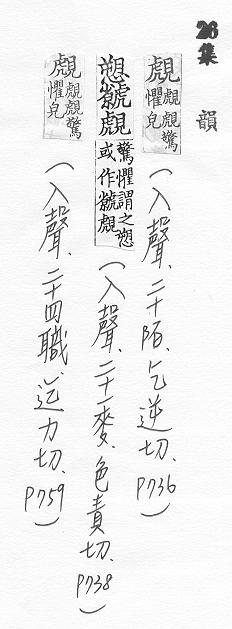 集韻
覤覤覤驚懼皃(入聲、二十陌、乞逆切、P736)
愬虩覤驚懼謂之愬或作虩覤(入聲、二十一麥、色責切、P738)
覤覤覤驚懼皃(入聲、二十四職、迄力切、P759)